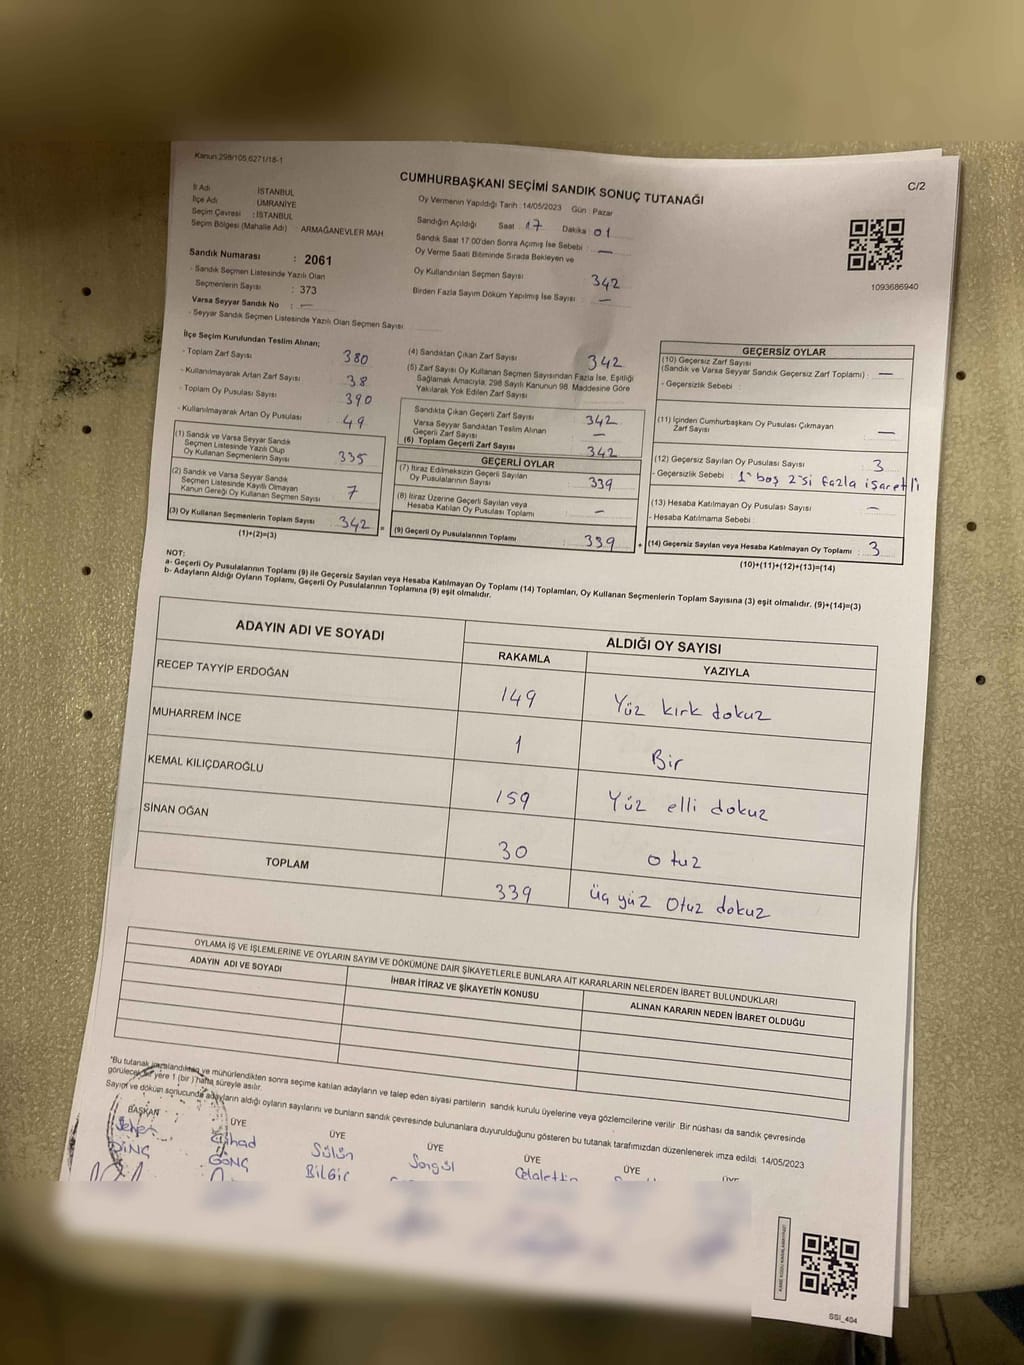 Kanun:298/105,6271/18-1
C/2
CUMHURBAŞKANI SEÇİMİ SANDIK SONUÇ TUTANAĞI
İl Adı : İSTANBUL
İlçe Adı : ÜMRANİYE
Seçim Çevresi : İSTANBUL
Seçim Bölgesi (Mahalle Adı) : ARMAĞANEVLER MAH
Sandık Numarası : 2061
- Sandık Seçmen Listesinde Yazılı Olan
Seçmenlerin Sayısı : 373
Varsa Seyyar Sandık No : —
- Seyyar Sandık Seçmen Listesinde Yazılı Olan Seçmen Sayısı
Oy Vermenin Yapıldığı Tarih :14/05/2023 Gün : Pazar
Sandığın Açıldığı Saat : 17 Dakika : 01
Sandık Saat 17.00'den Sonra Açımış İse Sebebi : —
Oy Verme Saati Bitiminde Sırada Bekleyen ve
Oy Kullandırılan Seçmen Sayısı 342
Birden Fazla Sayım Döküm Yapılmış İse Sayısı : —
1093686940
İlçe Seçim Kurulundan Teslim Alınan;
- Toplam Zarf Sayısı 380
- Kullanılmayarak Artan Zarf Sayısı 38
- Toplam Oy Pusulası Sayısı 390
- Kullanılmayarak Artan Oy Pusulası 49
(1) Sandık ve Varsa Seyyar Sandık
Seçmen Listesinde Yazılı Olup
Oy Kullanan Seçmenlerin Sayısı 335
(2) Sandık ve Varsa Seyyar Sandık
Seçmen Listesinde Kayıtlı Olmayan
Kanun Gereği Oy Kullanan Seçmen Sayısı 7
(3) Oy Kullanan Seçmenlerin Toplam Sayısı 342 =
(1)+(2)=(3)
(4) Sandıktan Çıkan Zarf Sayısı 342
(5) Zarf Sayısı Oy Kullanan Seçmen Sayısından Fazla İse, Eşitliği
Sağlamak Amacıyla, 298 Sayılı Kanunun 98. Maddesine Göre
Yakılarak Yok Edilen Zarf Sayısı
Sandıkta Çıkan Geçerli Zarf Sayısı 342
Varsa Seyyar Sandıktan Teslim Alınan
Geçerli Zarf Sayısı —
(6) Toplam Geçerli Zarf Sayısı 342
GEÇERLİ OYLAR
(7) İtiraz Edilmeksizin Geçerli Sayılan
Oy Pusulalarının Sayısı 339
(8) İtiraz Üzerine Geçerli Sayılan veya
Hesaba Katılan Oy Pusulası Toplamı —
(9) Geçerli Oy Pusulalarının Toplamı 339 +
GEÇERSİZ OYLAR
(10) Geçersiz Zarf Sayısı
(Sandık ve Varsa Seyyar Sandık Geçersiz Zarf Toplamı) : —
- Geçersizlik Sebebi :
(11) İçinden Cumhurbaşkanı Oy Pusulası Çıkmayan
Zarf Sayısı —
(12) Geçersiz Sayılan Oy Pusulası Sayısı 3
- Geçersizlik Sebebi : 1' boş 2'si fazla işaretli
(13) Hesaba Katılmayan Oy Pusulası Sayısı —
- Hesaba Katılmama Sebebi
(14) Geçersiz Sayılan veya Hesaba Katılmayan Oy Toplamı : 3
(10)+(11)+(12)+(13)=(14)
NOT:
a- Geçerli Oy Pusulalarının Toplamı (9) ile Geçersiz Sayılan veya Hesaba Katılmayan Oy Toplamı (14) Toplamları, Oy Kullanan Seçmenlerin Toplam Sayısına (3) eşit olmalıdır. (9)+(14)=(3)
b- Adayların Aldığı Oyların Toplamı, Geçerli Oy Pusulalarının Toplamına (9) eşit olmalıdır.
ADAYIN ADI VE SOYADI
ALDIĞI OY SAYISI
RAKAMLA YAZIYLA
RECEP TAYYİP ERDOĞAN 149 Yüz kırk dokuz
MUHARREM İNCE 1 Bir
KEMAL KILIÇDAROĞLU 159 Yüz elli dokuz
SİNAN OĞAN 30 otuz
TOPLAM 339 üç yüz Otuz dokuz
OYLAMA İŞ VE İŞLEMLERİNE VE OYLARIN SAYIM VE DÖKÜMÜNE DAİR ŞİKAYETLERLE BUNLARA AİT KARARLARIN NELERDEN İBARET BULUNDUKLARI
ADAYIN ADI VE SOYADI İHBAR İTİRAZ VE ŞİKAYETİN KONUSU ALINAN KARARIN NEDEN İBARET OLDUĞU
*Bu tutanak imzalandıktan ve mühürlendikten sonra seçime katılan adayların ve talep eden siyasi partilerin sandık kurulu üyelerine veya gözlemcilerine verilir. Bir nüshası da sandık çevresinde
görülecek bir yere 1 (bir ) hafta süreyle asılır.
Sayım ve döküm sonucunda adayların aldığı oyların sayılarını ve bunların sandık çevresinde bulunanlara duyurulduğunu gösteren bu tutanak tarafımızdan düzenlenerek imza edildi. 14/05/2023
BAŞKAN ÜYE ÜYE ÜYE ÜYE ÜYE ÜYE
DİNÇ
Cihad
GÖNÇ
BİLGİÇ
Songül
Celalettin
SSİ_404